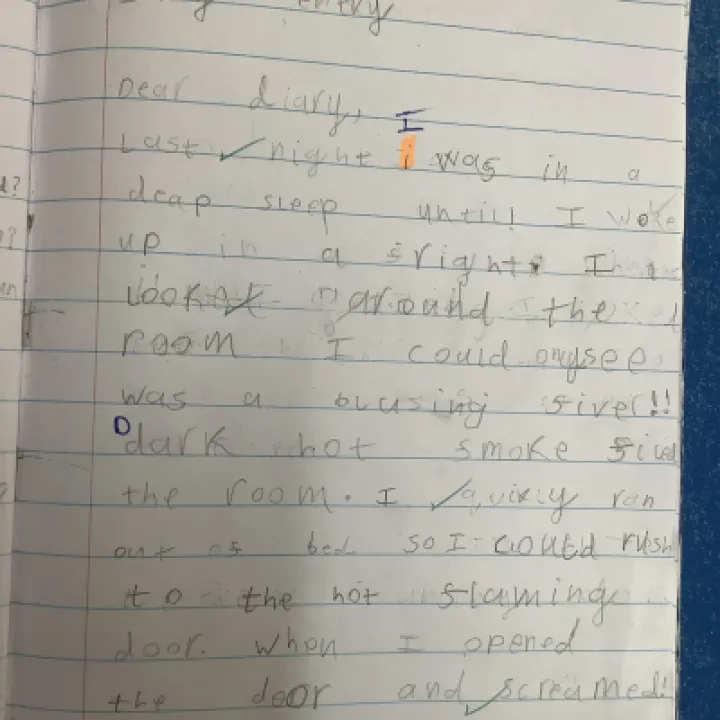 entry
Dear diary,
I
Last night i was in a
deap sleep until! I woke
up in a fright. I
look around the
room I could onysee
was a blasing fiver!!
D
dark hot smoke
the room. I quixly ran
out of bed so I could rush
to the hot flaming
door. when I opened
the door and screamed!